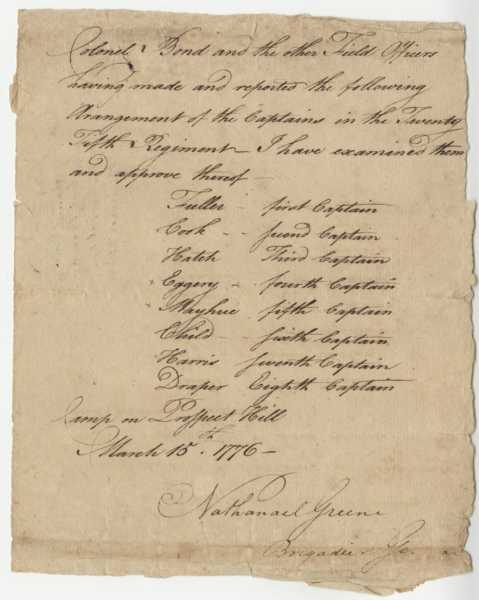 Colonel Bond and the other Field Officers
having made and reported the following
Arangement of the Captains in the Twenty
Fifth Regiment – I have examined them
and approve thereof –
Fuller - first Captain
Cook - - second Captain
Hatch Third Captain
Eggery - fourth Captain
Mayhue - fifth Captain
Child - sixth Captain
Harris seventh Captain
Draper Eighth Captain
Camp on Prospect Hill
March 15th. 1776 –
Nathanael Greene
Brigadier Ge